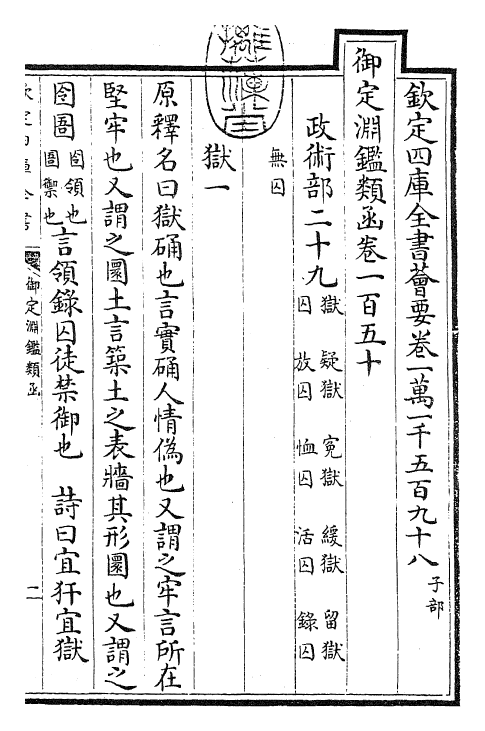 欽定四庫全書薈要卷一萬一千五百九十八 子部
御定淵鑑類函卷一百五十
政術部二十九 獄 疑獄 寃獄 緩獄 留獄
囚 放囚 恤囚 活囚 錄囚
無囚
獄一
原釋名曰獄确也言實确人情偽也又謂之牢言所在
堅牢也又謂之圜土言築土之表牆其形圜也又謂之
囹圄 囹領也 圄禦也 言領錄囚徒禁御也 詩曰宜犴宜獄
御定淵鑑類函